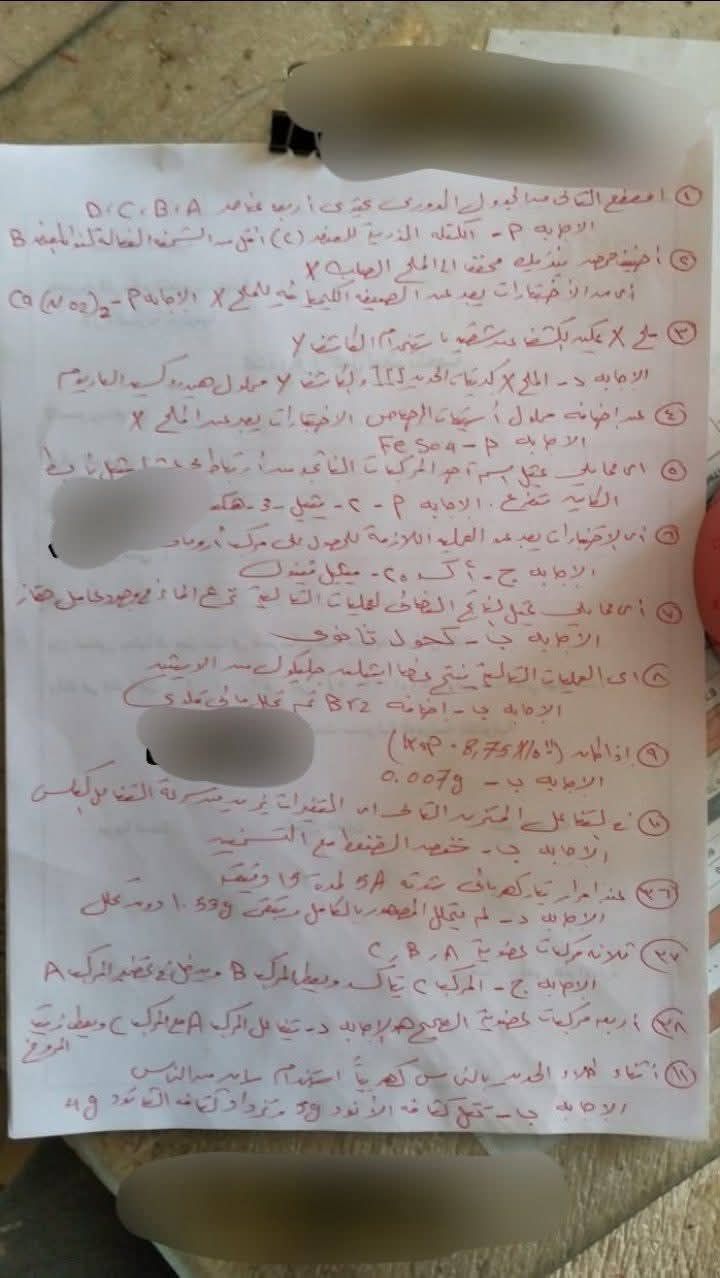 ① المقطع التالى من الجدول الدورى يحتوى أربعة عناصر D، C، B، A
الاجابه P - الكتله الذرية للعنصر (C) أقل من الشحنة الفعالة لنواة B
② أضيف حمض يدريك مخففا الى الملح الصلب X
أى من الأختيارات يعد عن الصيغه الكيميائيه للملح X الاجابه P - Ca(NO2)2
③ ملح X يمكن الكشف عن شقيه باستخدام الكاشف Y
الاجابه د - الملح X كبريتات الحديد III والكاشف Y محلول هيدروكسيد الباريوم
④ عند اضافه محلول أسيتات الرصاص الاختيارات يعد عن الملح X
الاجابه P - FeSO4
⑤ اى مما يلى يمثل اسم أحد المركبات الناتجه من أرتباط
الكاين متفرع. الاجابه P - ٢ - يثيل - 3 -
⑥ أى الاختيارات يعد عن العمليه اللازمة للحصول على مركب أروماتى
الاجابه ج - أكسده - ميثيل فينول
⑦ أى مما يلى يمثل الناتج النهائى لعمليات التالية نزع الماء فى وجود عامل حفاز
الاجابه ب - كحول ثانوى
⑧ اى العمليات التالية ينتج عنها ايثيلين جليكول من الايثين
الاجابه ب - اضافه Br2 ثم تحلل مائى قلوى
⑨ اذا كان (Ksp = 8,75X10¹¹)
الاجابه ب - 0.007g
⑩ فى التفاعل المتزن التالى اى التغيرات يزيد من سرعة التفاعل العكسى
الاجابه ب - خفض الضغط مع التسخين
(٣٦) عند امرار تيار كهربائى شدته 5A لمدة 15 دقيقه
الاجابه د - لم يتحلل المصهور بالكامل ويتبقى 1.53g دون تحلل
(٣٧) ثلاثه مركبات عضوية C، B، A
الاجابه ج - المركب C يتأكسد ويعطى المركب B ويدخل فى تحضير المركب A
(٣٨) أربعه مركبات عضوية الصحيح هو الاجابه د - تفاعل المركب A مع المركب C ويعطى زيت
المروخ
⑪ أثناء طلاء الحديد بالنحاس كهربياً استخدام ساق من النحاس
الاجابه ب - تقل كتله الأنود 5g وتزداد كتله الكاثود 4g